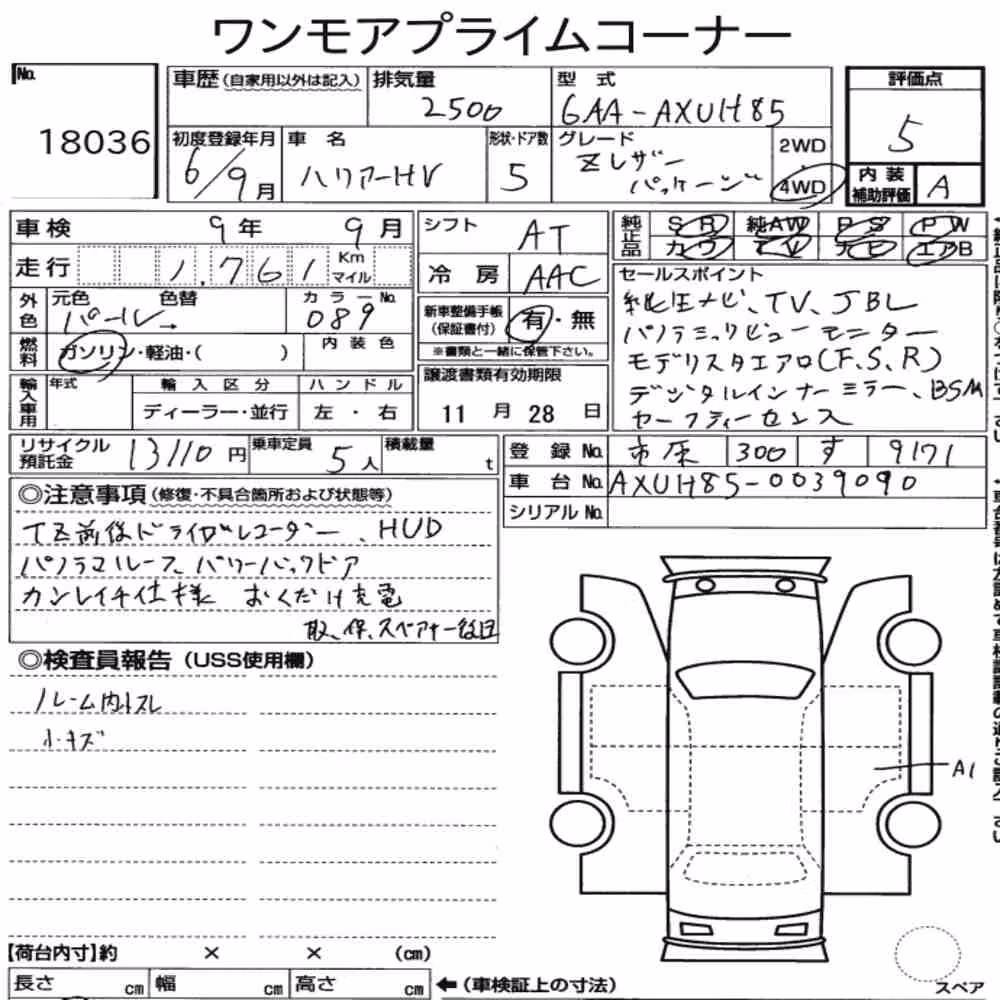 ワンモアプライムコーナー
No.
18036
車歴(自家用以外は記入)
排気量
2500
型 式
6AA-AXUH85
評価点
5
初度登録年月
6/9月
車 名
ハリアーHV
形状・ドア数
5
グレード
Zレザー
パッケージ
2WD
4WD
内装
補助評価
A
車検 9年 9月
シフト
AT
純正品
SR 純AW PS PW
カワ TV ナビ エアB
走行 1,761 Km マイル
冷房
AAC
セールスポイント
純正ナビ、TV、JBL
パノラミックビューモニター
モデリスタエアロ(F.S.R)
デジタルインナーミラー、BSM
セーフティーセンス
外色
元色 色替
パール→
カラーNo.
089
新車整備手帳
(保証書付)
有・無
※書類と一緒に保管下さい。
燃料
ガソリン・軽油・( )
内装色
輸入車用
年式
輸入区分
ディーラー・並行
ハンドル
左・右
譲渡書類有効期限
11 月 28 日
リサイクル
預託金
13110円
乗車定員
5人
積載量
t
登録No. 市原 300 す 9171
車台No. AXUH85-0039090
シリアルNo.
◎注意事項(修復・不具合箇所および状態等)
TZ前後ドライブレコーダー、HUD
パノラマルーフ、パワーバックドア
カンレイチ仕様 おくだけ充電
取、保、スペアキー後日
◎検査員報告(USS使用欄)
ルーム内スレ
小キズ
A1
【荷台内寸】約 × × (cm)
長さ cm 幅 cm 高さ cm
←(車検証上の寸法)
スペア